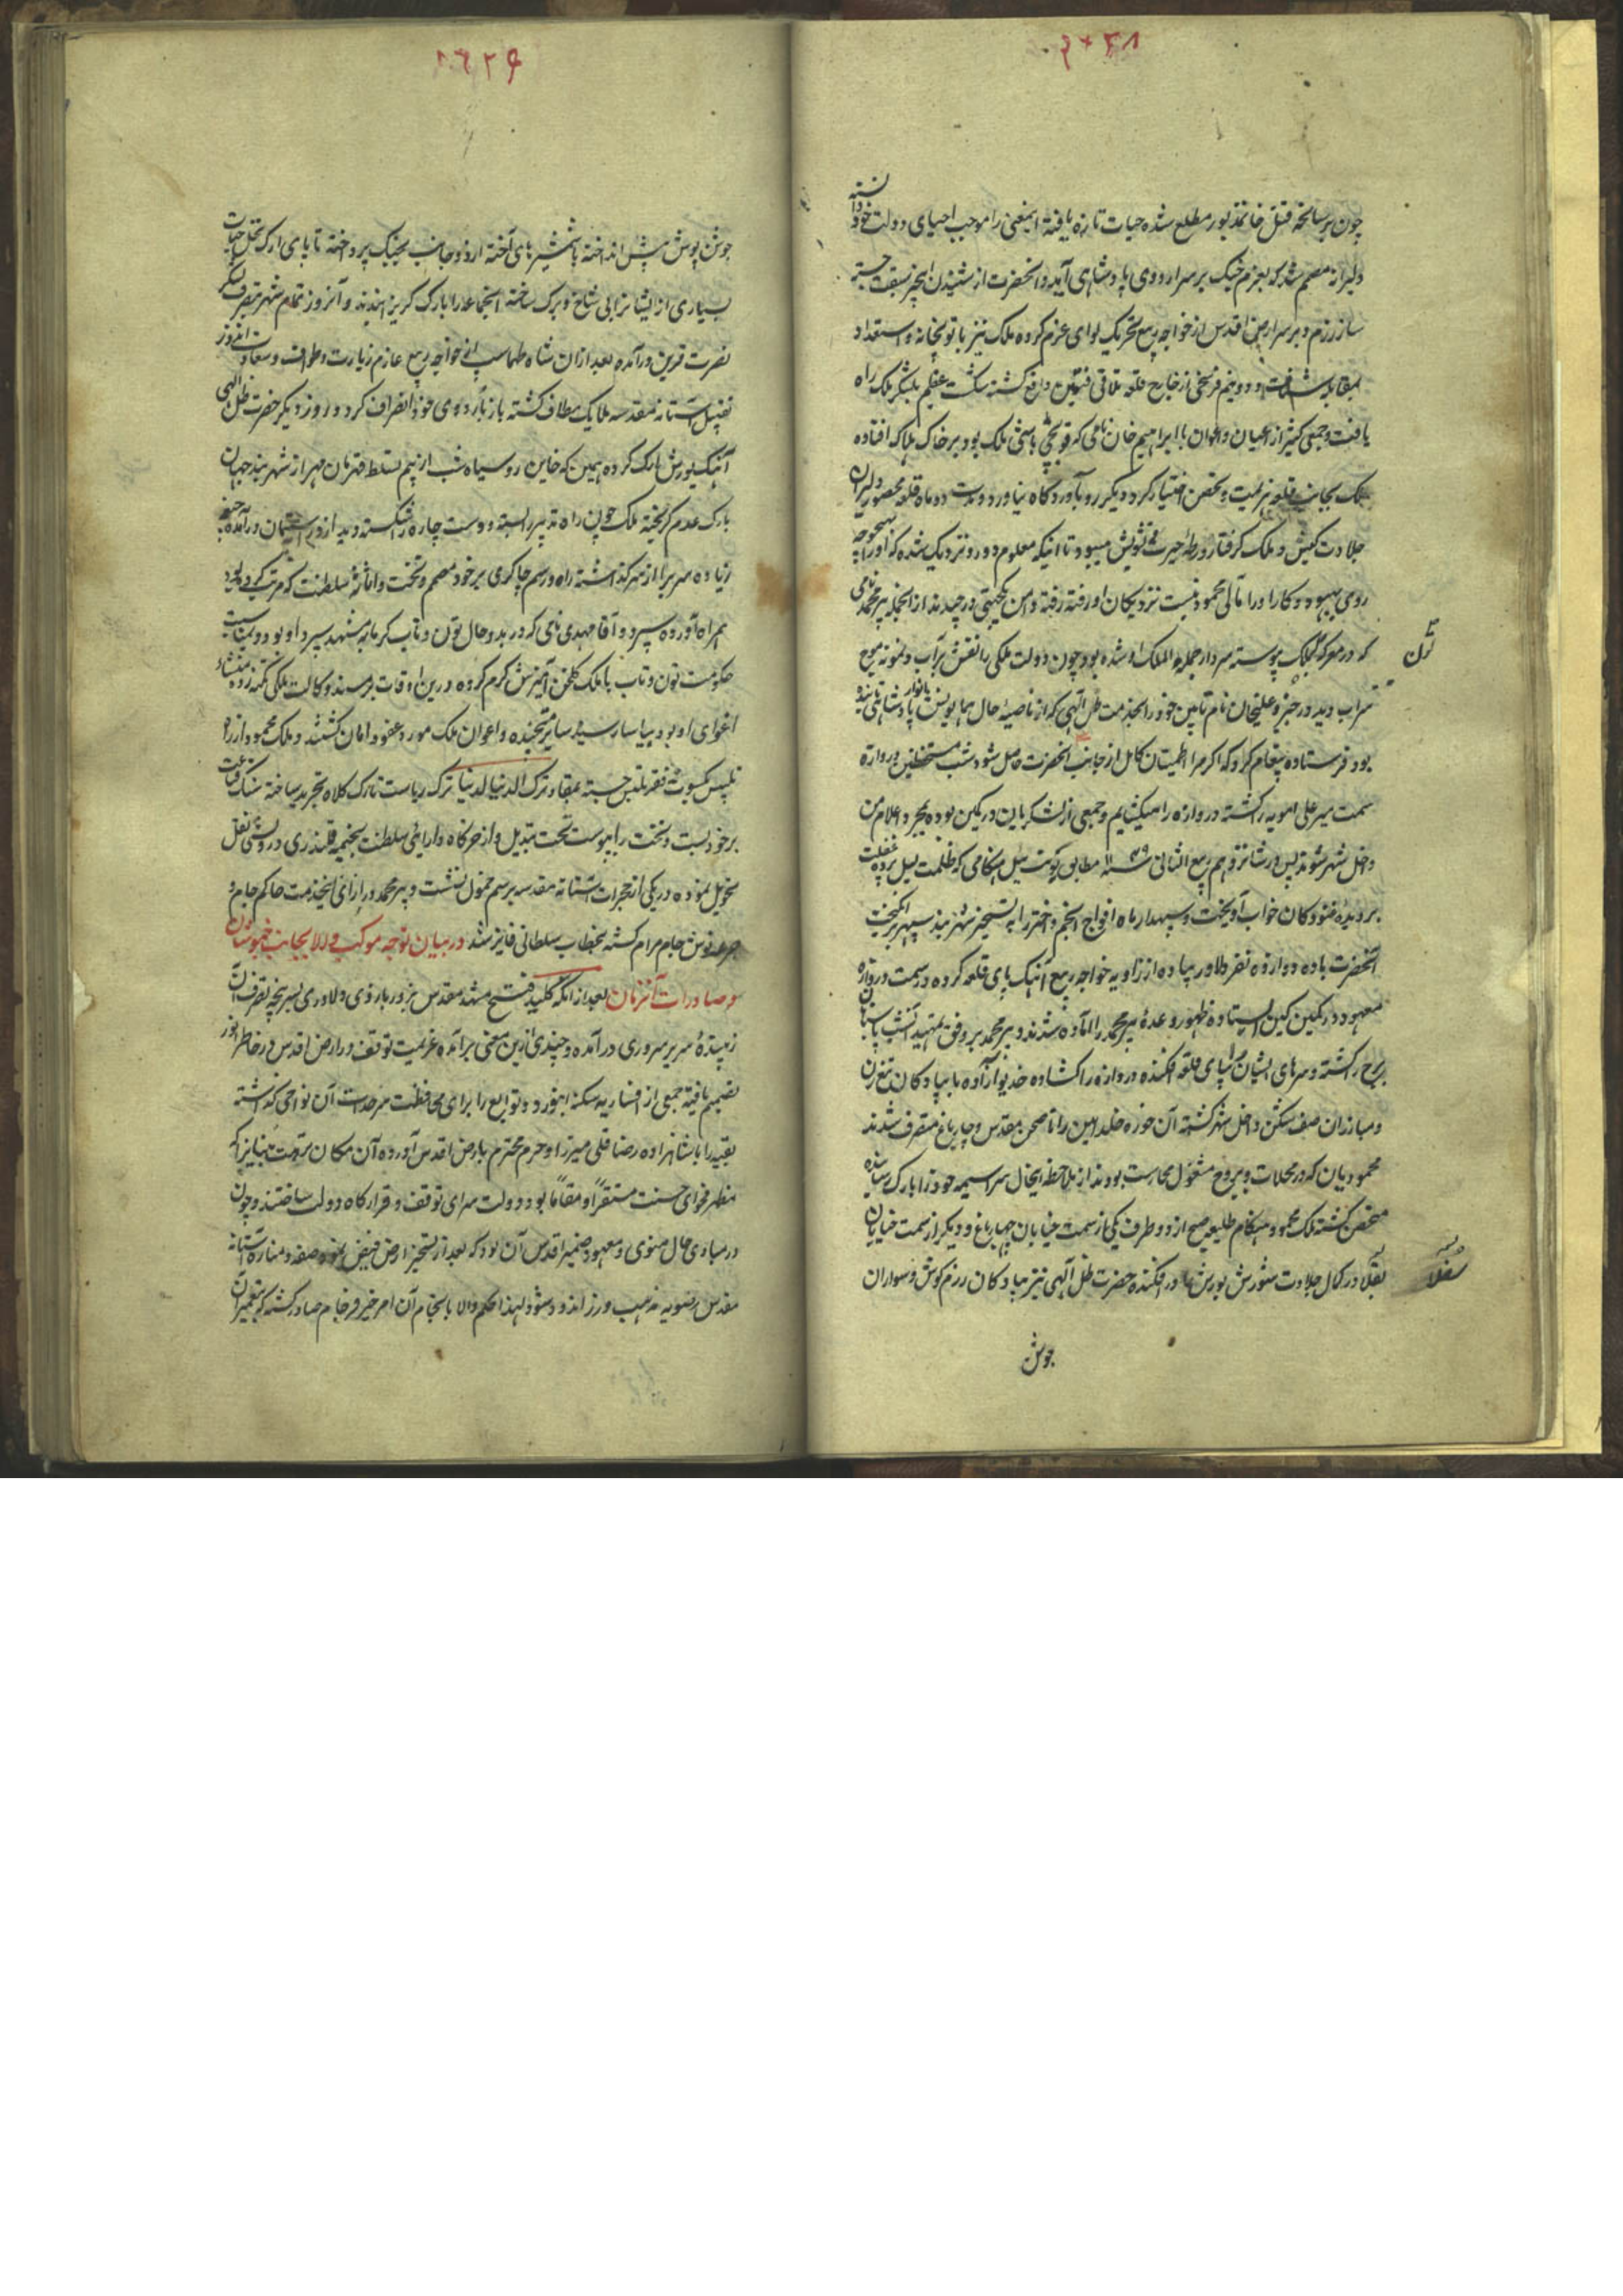 چون بر سانحهٔ قتل خانمذبور مطلع شده حیات تازه یافته اینمعنی را موجب احیای دولت خود دانسته
دلیرانه مصمم شد که بعزم جنک بر سر اردوی پادشاهی آید و انحضرت از شنیدن اینخبر سبقت جسته
ساز رزم و بر سر ارض اقدس از خواجه ربیع تحریک لوای عزم کرده ملک نیز با توپخانه و استعداد
بمقابله شتافت و در نیم فرسخی از خارج قلعه تلاقی فئتین واقع کشته شکست عظیم بلشکر ملک راه
یافت و جمعی کثیر از اعیان و اعوان با ابراهیم خان نامی که توپچی باشی ملک بود بر خاک هلاک افتاده
ملک بجانب قلعه هزیمت و تحصن اختیار کرد دیکر رو بآوردکاه نیاورد و مدت دو ماه قلعه محصور دلیران
جلادت کیش و ملک کرفتار ورطهٔ حیرت و تشویش میبود تا اینکه معلوم دور و نزدیک شده که او را بهیچوجه
روی بهبود و کار او را مآلی محمود نیست نزدیکان او رفته رفته دامن کمجهتی در چیدند از انجمله پیر محمد نامی
که در معرکه پیوسته سردار جمله الملک او شده بود چون دولت ملکی را نقش بر آب و نمونه موج
سراب دید در خفیه علیخان نام تابین خود را بخدمت ظل آلهی که از ناصیهٔ حال همایونش انوار پادشاهی تابنده
بود فرستاده پیغام کرد که اکر مرا اطمینان کامل از جانب انحضرت حاصل شود شب مستحفظین دروازه
سمت میر علی امویه را کشته دروازه را میکشایم و جمعی از لشکریان در کمین بوده بمجرد اعلام من
داخل شهر شوند پس در شانزدهم ربیع الثانی سنه ۱۱۳۹ مطابق یونت ئیل هنکامی که ظلمت لیل پرده غفلت
بر دیدهٔ غنودکان خواب آویخت و سپهدار ماه افواج انجم و اختر را به تسخیر شهر بند سپهر بر انکیخت
انحضرت با ده دوازده نفر دلاور پیاده از زاویه خواجه ربیع آهنک پای قلعه کرده در سمت دروازه
معهود در کمین کین ایستاده ظهور وعدهٔ پیر محمد را آماده شدند و پیر محمد بر وفق تمهید آنشب پاسبانان
برج را کشته و سرهای ایشان را بپای قلعه افکنده دروازه را کشاده خدیو آزاده با پیادکان تیغ زن
و مبارزان صف شکن داخل شهر کشته آن حوزه خلد آیین را تا صحن مقدس و چارباغ متصرف شدند
محمودیان که در محلات و بروج مشغول محارست بودند از ملاحظه اینحال سراسیمه خود را بارک رسانیده
متحصن کشته ملک محمود هنکام طلیعه صبح از دو طرف یکی از سمت خیابان چهارباغ و دیکر از سمت خیابان
سفلا
بقلا در کمال جلادت شورش یورش در افکنده حضرت ظل آلهی نیز پیادکان رزم کوش و سواران
جوش
جوشن پوش پیش انداخته با شمشیرهای آخته از دو جانب بجنک پرداخته تا پای ارک نخل حیات
بسیاری از ایشانرا بی شاخ و برک ساخته انجماعه را بارک کریزانیدند و آنروز تمام شهر بتصرف لشکر
نصرت قرین درآمده بعد از ان شاه طهماسب از خواجه ربیع عازم زیارت و طواف و سعادت اندوز
تقبیل آستانه مقدسه ملایک مطاف کشته باز باردوی خود انصراف کرد و روز دیکر حضرت ظل الهی
آهنک یورش بارک کرده همین که خاین روسیاه شب از بیم تسلط قهرمان مهر از شهربند جهان
بارک عدم کریخته ملک چون راه تدبیر را بسته و دست چاره را شکسته دید از در استیمان درآمده جقه
زیاده سر برا از سر کذاشته راه و رسم چاکری بر خود مصمم و تخت و اثاثهٔ سلطنت که مرتب کرده بود
همراه آورده سپرد و آقا مهدی نامی که در بدو حال تون و تاب کرمابه مشهد سپرد او بود و بمناسبت
حکومت تون و تاب با ملک کلخن آمیزش کرم کرده درین اوقات بمسند وکالت ملکی تکیه زده منشاء
اغوای او بود بیاسا رسید سایر تتمه و اعوان ملک مورد عفو و امان کشتند و ملک محمود از راه
تلبیس بکسوت فقر تلبس جسته بمفاد ترک الدنیا للدنیا ترک ریاست تارک کلاه تجرید ساخته سنک قناعت
بر خود بست و تخت را بپوست تخت تبدیل و از خرکاه دارایی سلطنت بخیمه قلندری درویشی نقل
تحویل نموده در یکی از حجرات آستانه مقدسه برسم خمول نشست و پیر محمد در ازای اینخدمت حاکم جام و
جرعه نوش جام مرام کشته بخطاب سلطانی فایز شد در بیان توجه موکب والا بجانب خبوشان
و صادرات آنزمان بعد از انکه کلید فتح مشهد مقدس بزور بازوی دلاوری بسرپنجه تصرف آن
زیبندهٔ سریر سروری درآمده و چندی ازین معنی برآمده عزیمت توقف در ارض اقدس در خاطر انور
تصمیم یافته جمعی از افشاریه سکنه ابیورد و توابع را برای محافظت سرحدات آن نواحی کذاشته
بقیه را با شاهزاده رضا قلی میرزا و حرم محترم بارض اقدس آورده آن مکان
مظهر فحوای حسنت مستقرا و مقاما بود دولت سرای توقف و قرارکاه دولت ساختند و چون
در مبادی حال منوی و معهود ضمیر اقدس آن بود که بعد از تسخیر ارض فیض نمود صفه و مناره آستانه
مقدس رضویه مذهب و زراندود شود لهذا حکم والا بانجام آن امر خیر فرجام صادر کشته که بتعمیر آن